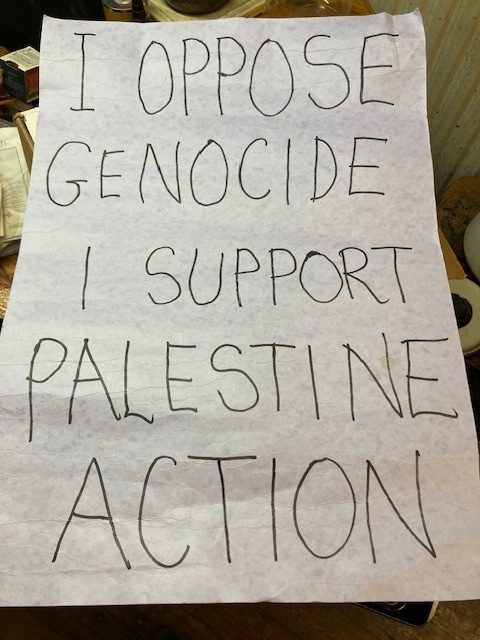 I OPPOSE
GENOCIDE
I SUPPORT
PALESTINE
ACTION